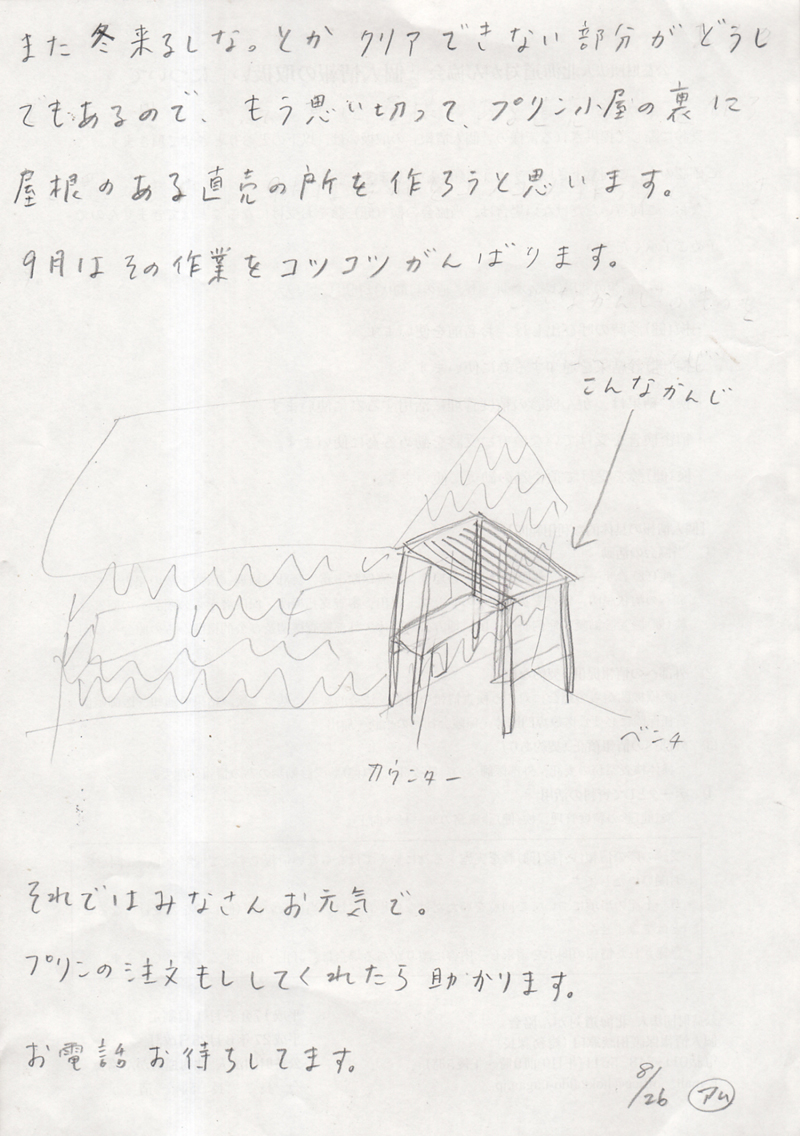 また冬来るしな。とか クリアできない部分がどうし
てもあるので、もう思い切って、プリン小屋の裏に
屋根のある直売の所を作ろうと思います。
9月はその作業をコツコツがんばります。
こんなかんじ
ベンチ
カウンター
それではみなさんお元気で。
プリンの注文もししてくれたら助かります。
お電話お待ちしてます。
8/26